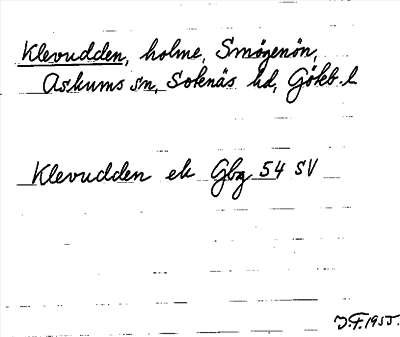 Klevudden, holme, Smögenön,
Askums sn, Sotenäs hd, Göteb. l
Klevudden ek Gbg 54 SV
J.F. 1955.